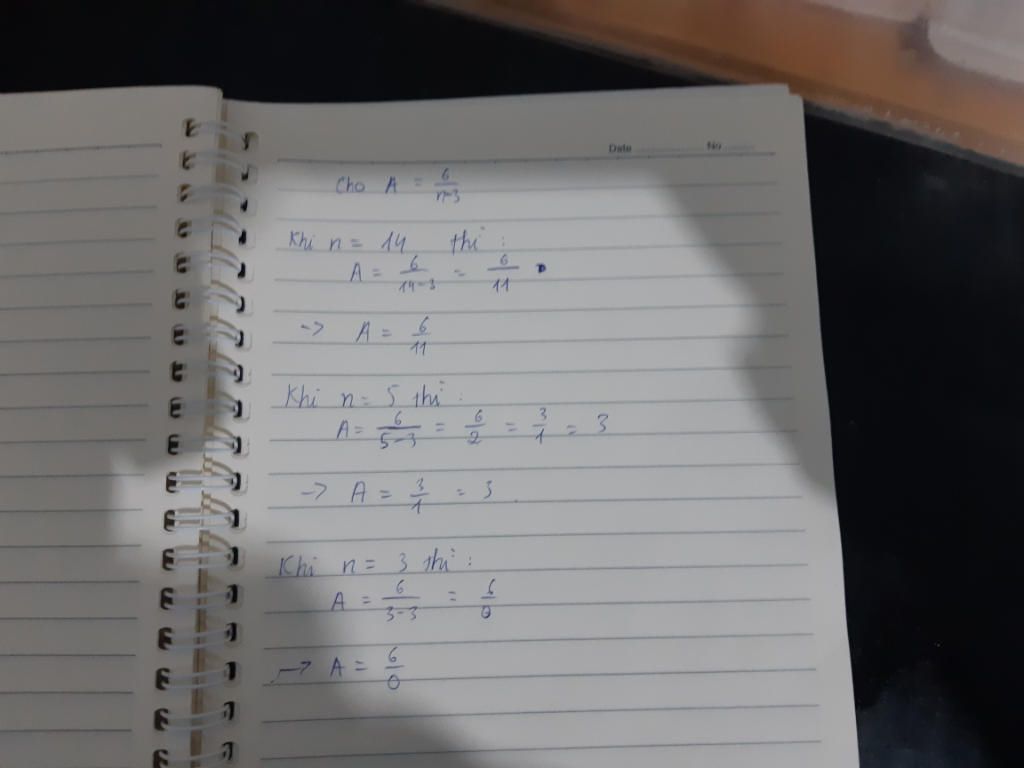 Date No
Cho A = 6/(n-3)
Khi n = 14 thì :
A = 6/(14-3) = 6/11
-> A = 6/11
Khi n = 5 thì :
A = 6/(5-3) = 6/2 = 3/1 = 3
-> A = 3/1 = 3 .
Khi n = 3 thì :
A = 6/(3-3) = 6/0
-> A = 6/0